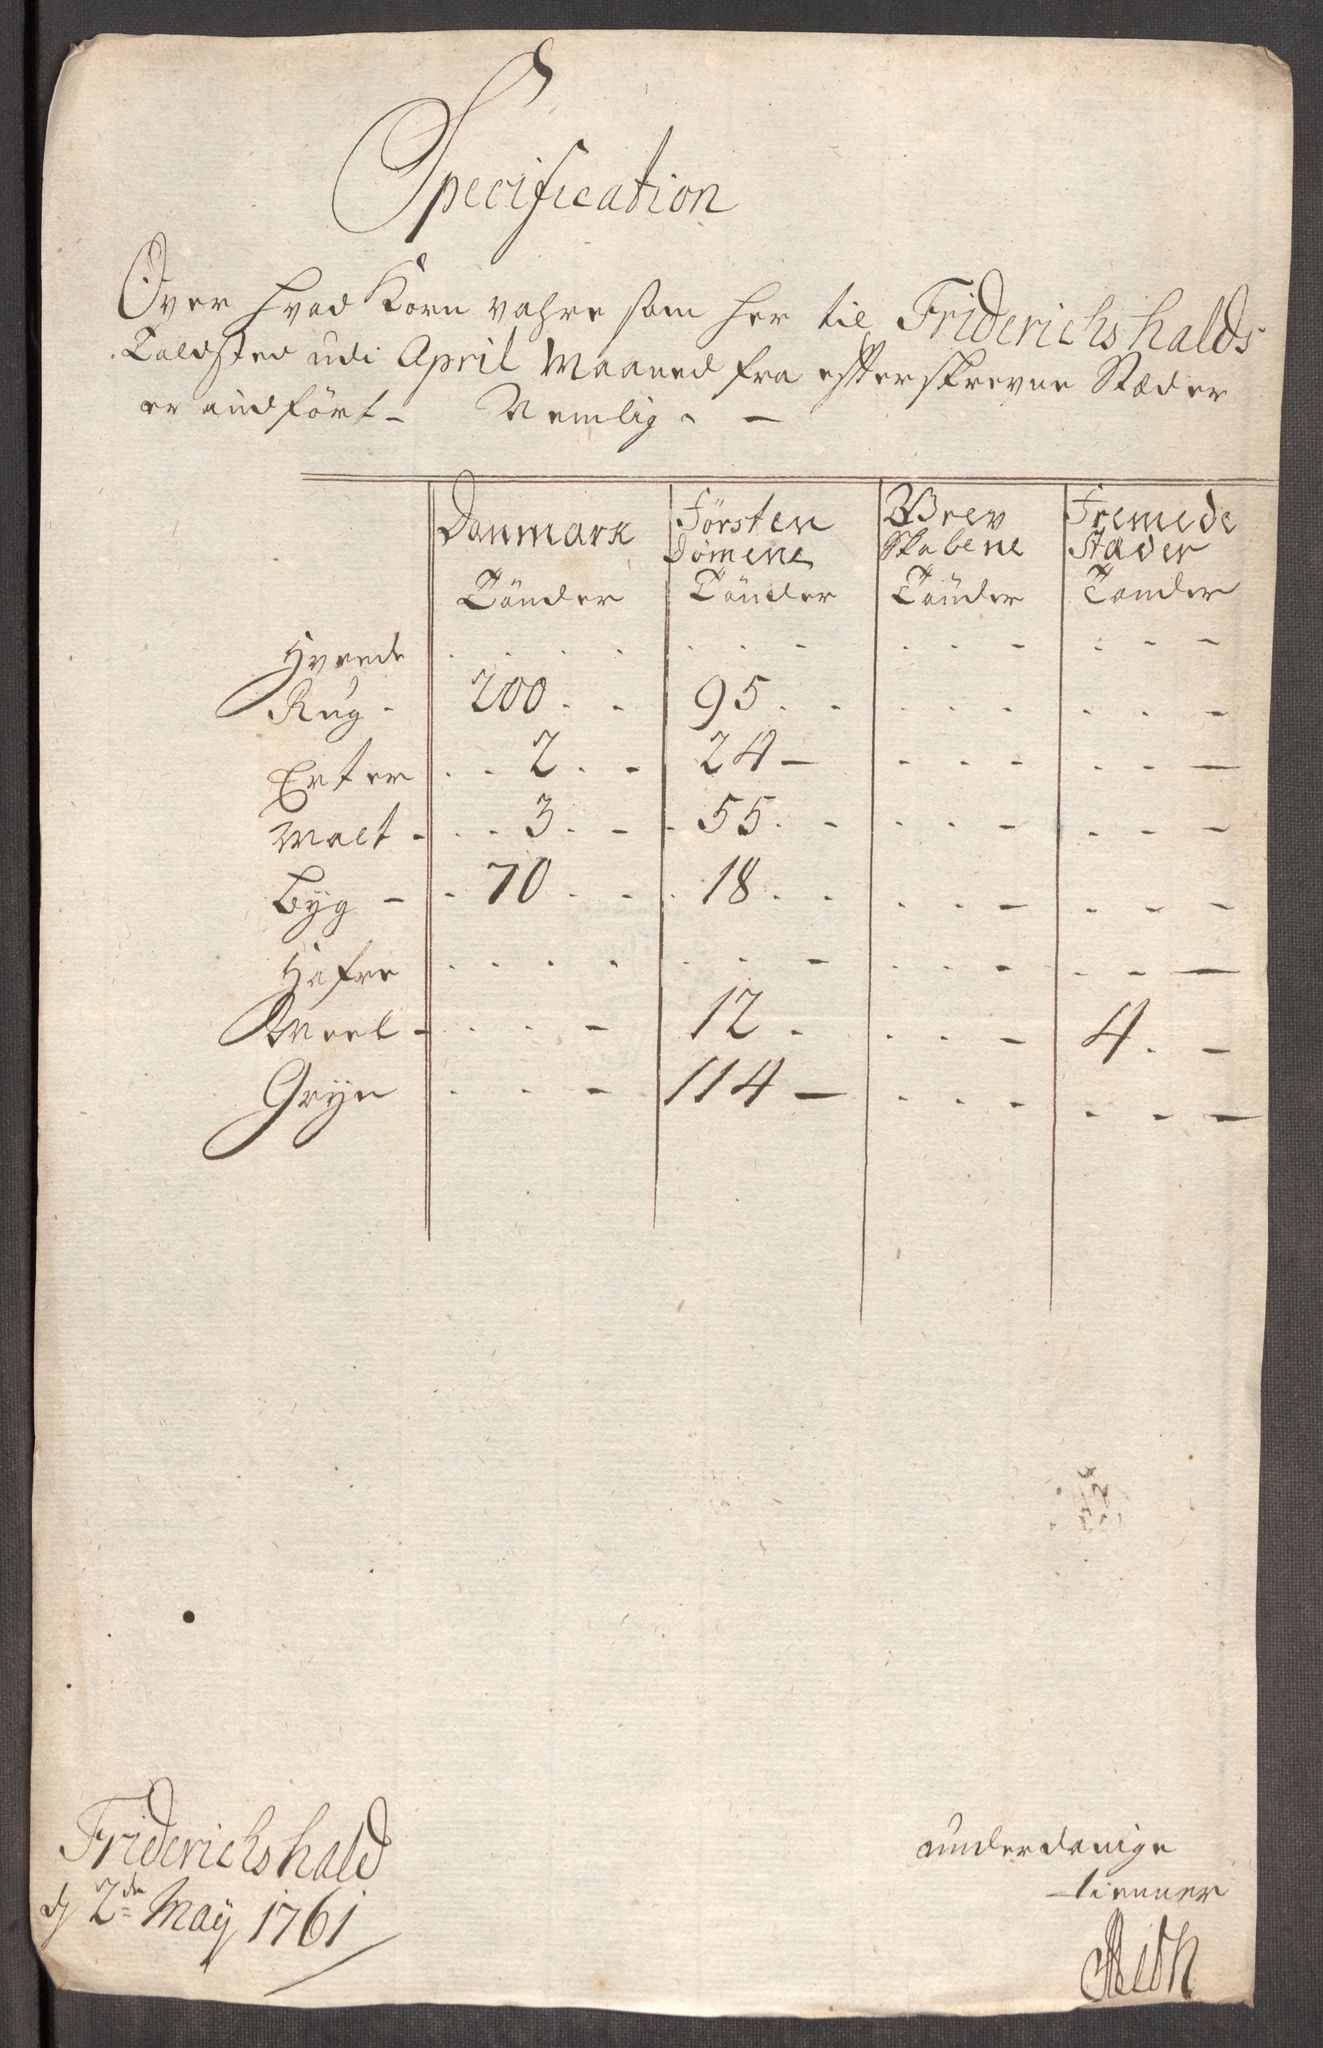 Specification
Over hvad Korn vahre som her til Friderichshalds
Toldsted udi April Maaned fra efterskrevne Stæder
er indført - Nemlig - -
Danmark Försten Brev Fremede
Dömene Skabene Stæder
Tönder Tönder Tönder Tönder
Hvede . . . . . . - . . - . - -
Rug - 200 . . 95 . . . . . . . -
Erter . . 2 . - 24 - . . - . . -
Malt - . . 3 . - . 55 . - . . - . . -
Byg - . 70 . . . 18 . . . . - . . -
Hafre . . . . . . - . . - . - -
Meel - . . . - 12 . . . - 4 . -
Gryn . . . - 114 - . . - . - -
Friderichshald
d 2de May 1761
underdanige
tienner